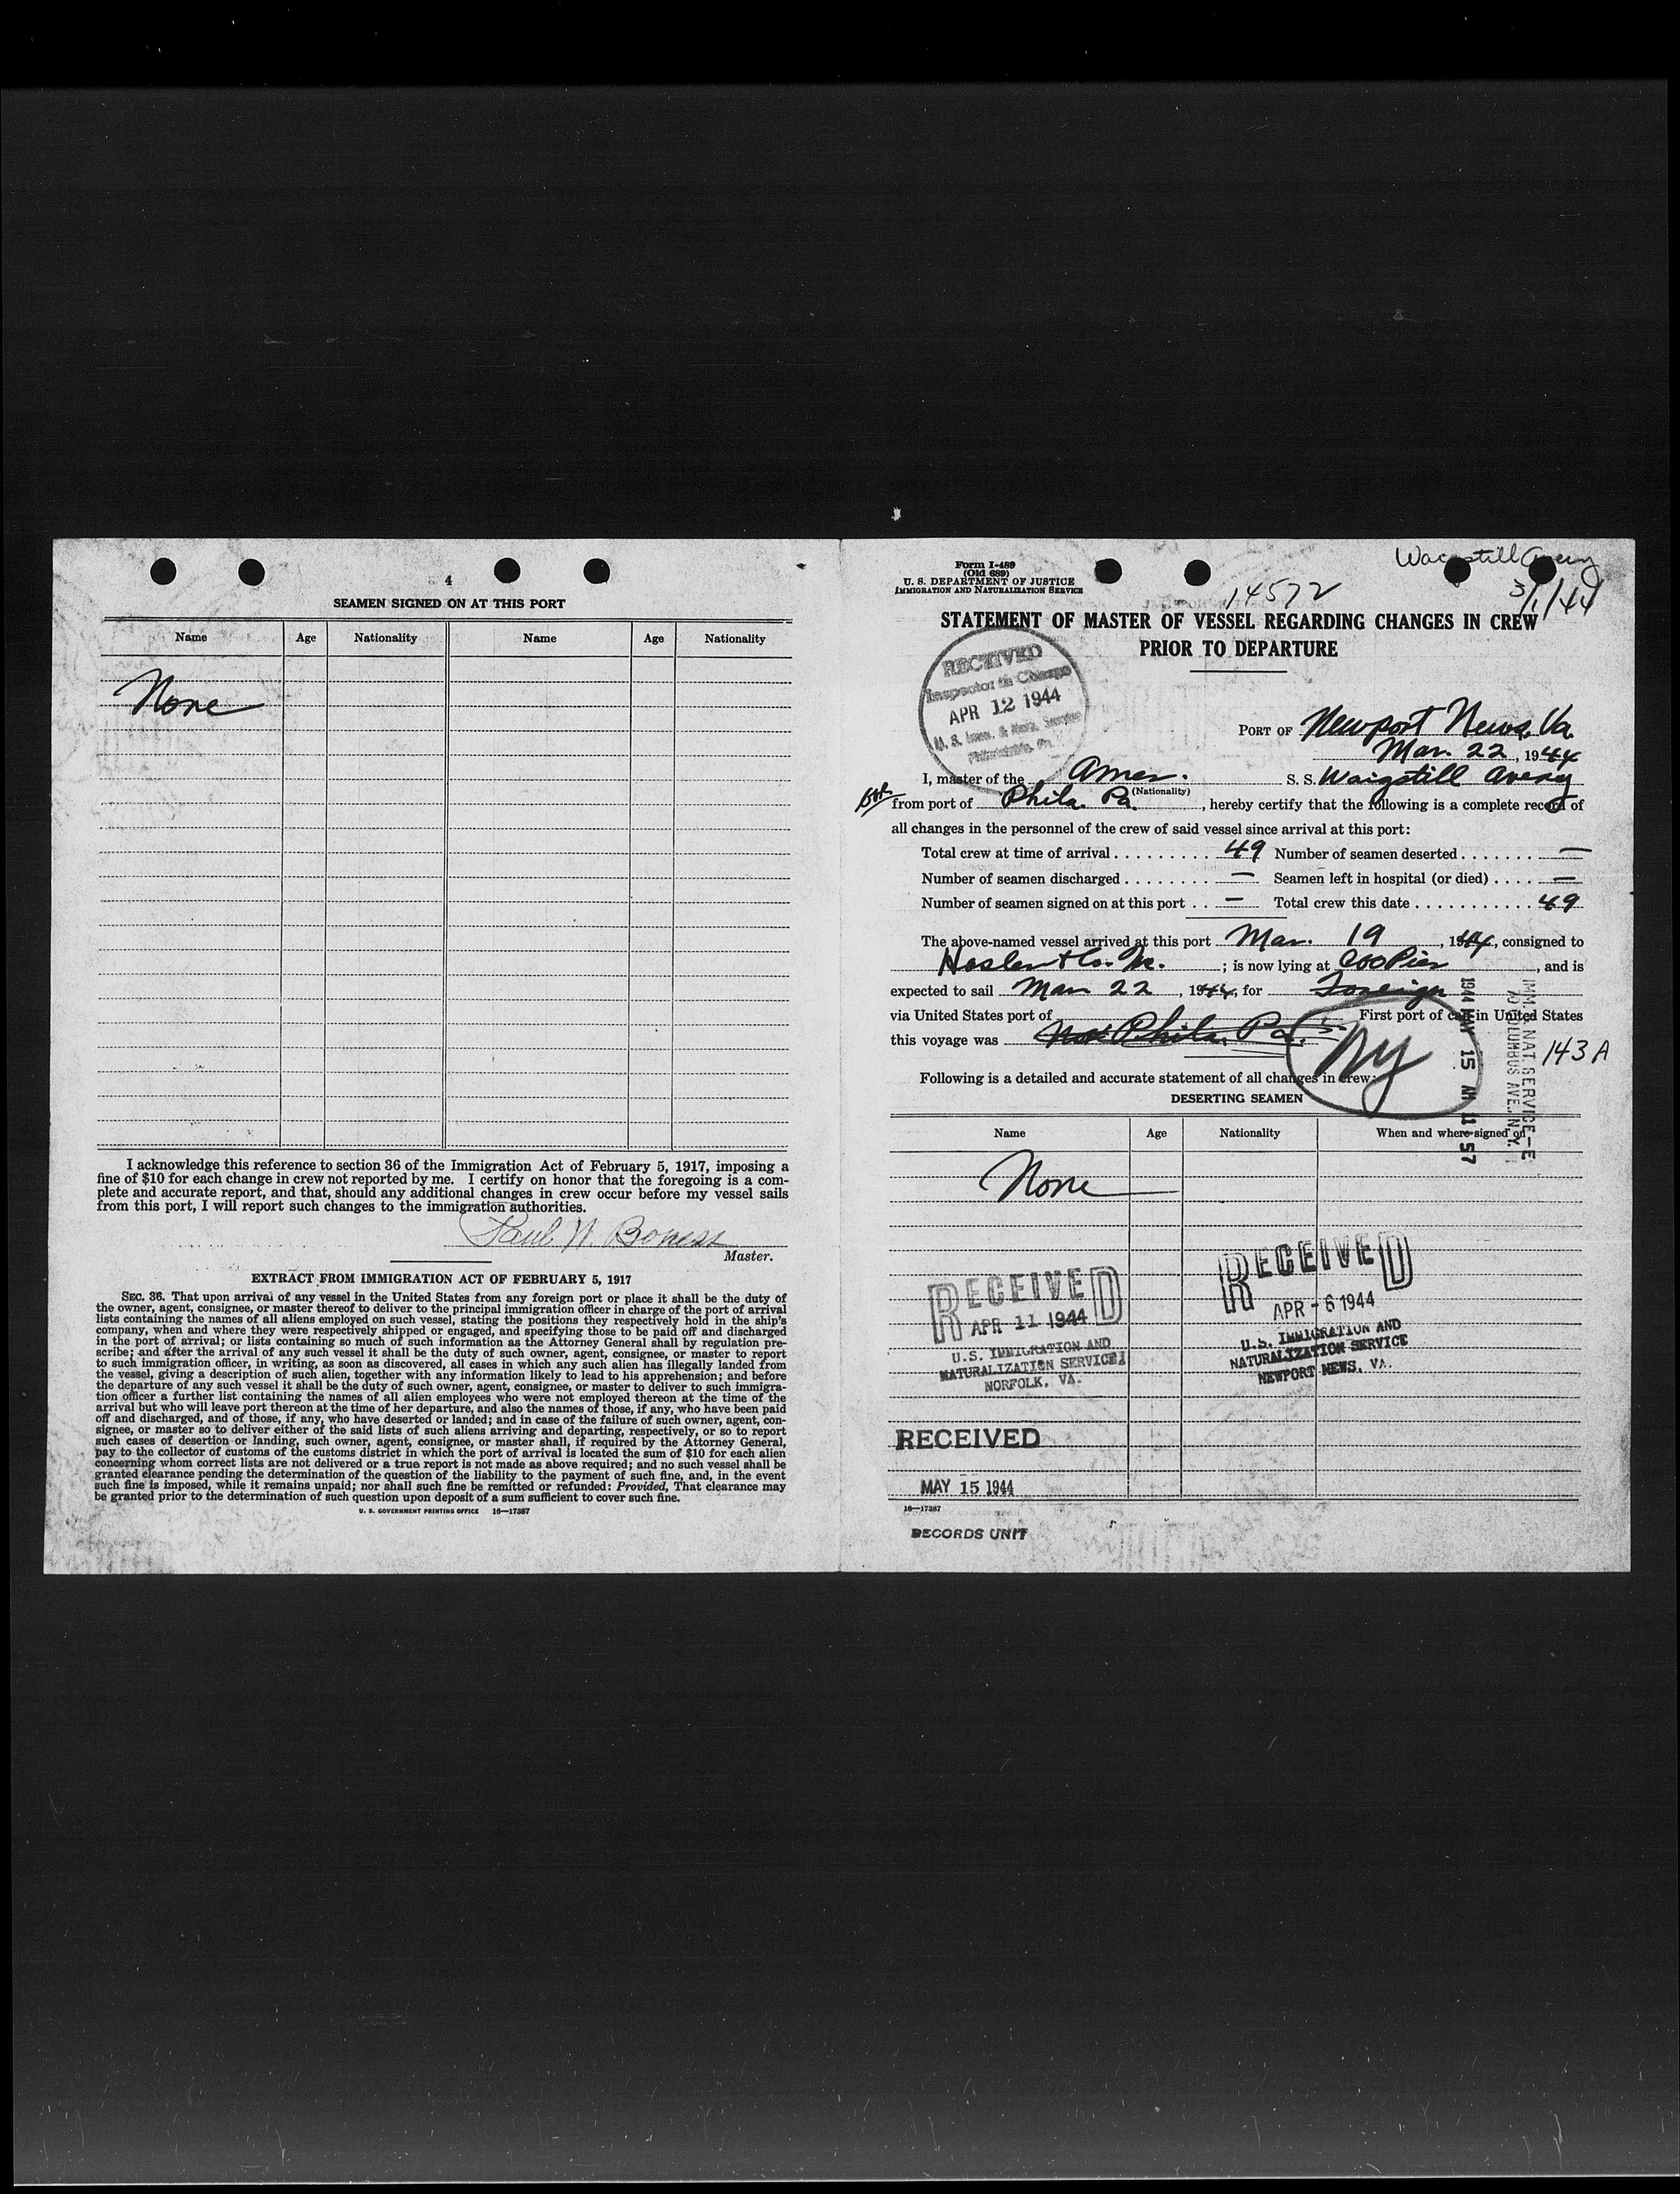 4
SEAMEN SIGNED ON AT THIS PORT
Name Age Nationality Name Age Nationality
None
I acknowledge this reference to section 36 of the Immigration Act of February 5, 1917, imposing a
fine of $10 for each change in crew not reported by me. I certify on honor that the foregoing is a com-
plete and accurate report, and that, should any additional changes in crew occur before my vessel sails
from this port, I will report such changes to the immigration authorities.
Paul W. Boness
Master.
EXTRACT FROM IMMIGRATION ACT OF FEBRUARY 5, 1917
SEC. 36. That upon arrival of any vessel in the United States from any foreign port or place it shall be the duty of
the owner, agent, consignee, or master thereof to deliver to the principal immigration officer in charge of the port of arrival
lists containing the names of all aliens employed on such vessel, stating the positions they respectively hold in the ship's
company, when and where they were respectively shipped or engaged, and specifying those to be paid off and discharged
in the port of arrival; or lists containing so much of such information as the Attorney General shall by regulation pre-
scribe; and after the arrival of any such vessel it shall be the duty of such owner, agent, consignee, or master to report
to such immigration officer, in writing, as soon as discovered, all cases in which any such alien has illegally landed from
the vessel, giving a description of such alien, together with any information likely to lead to his apprehension; and before
the departure of any such vessel it shall be the duty of such owner, agent, consignee, or master to deliver to such immigra-
tion officer a further list containing the names of all alien employees who were not employed thereon at the time of the
arrival but who will leave port thereon at the time of her departure, and also the names of those, if any, who have been paid
off and discharged, and of those, if any, who have deserted or landed; and in case of the failure of such owner, agent, con-
signee, or master so to deliver either of the said lists of such aliens arriving and departing, respectively, or so to report
such cases of desertion or landing, such owner, agent, consignee, or master shall, if required by the Attorney General,
pay to the collector of customs of the customs district in which the port of arrival is located the sum of $10 for each alien
concerning whom correct lists are not delivered or a true report is not made as above required; and no such vessel shall be
granted clearance pending the determination of the question of the liability to the payment of such fine, and, in the event
such fine is imposed, while it remains unpaid; nor shall such fine be remitted or refunded: Provided, That clearance may
be granted prior to the determination of such question upon deposit of a sum sufficient to cover such fine.
U. S. GOVERNMENT PRINTING OFFICE 16—17387
Form I-489
(Old 689)
U. S. DEPARTMENT OF JUSTICE
IMMIGRATION AND NATURALIZATION SERVICE
Waigstill Avery
14572 3/1/44
STATEMENT OF MASTER OF VESSEL REGARDING CHANGES IN CREW
PRIOR TO DEPARTURE
RECEIVED
Inspector in Charge
APR 12 1944
U. S. Imm. & Natz. Service
Philadelphia, Pa.
PORT OF Newport News, Va.
Mar. 22, 1944
I, master of the Amer. S. S. Waigstill Avery
(Nationality)
from port of Phila. Pa., hereby certify that the following is a complete record of
all changes in the personnel of the crew of said vessel since arrival at this port:
Total crew at time of arrival . . . . . . . . . 49 Number of seamen deserted . . . . . . . —
Number of seamen discharged . . . . . . . . — Seamen left in hospital (or died) . . . . —
Number of seamen signed on at this port . . — Total crew this date . . . . . . . . . . . 49
The above-named vessel arrived at this port Mar. 19, 1944, consigned to
Hasler & Co. Inc.; is now lying at C&O Pier, and is
expected to sail Mar 22, 1944, for Foreign
via United States port of First port of call in United States
this voyage was Phila. Pa.
NY
143 A
1944 MAY 15 AM 11 57
IMM. & NAT. SERVICE—E
70 COLUMBUS AVE., N.Y.
Following is a detailed and accurate statement of all changes in crew:
DESERTING SEAMEN
Name Age Nationality When and where signed on
None
RECEIVED
APR 11 1944
U.S. IMMIGRATION AND
NATURALIZATION SERVICE
NORFOLK, VA.
RECEIVED
APR - 6 1944
U.S. IMMIGRATION AND
NATURALIZATION SERVICE
NEWPORT NEWS, VA.
RECEIVED
MAY 15 1944
16—17387
RECORDS UNIT